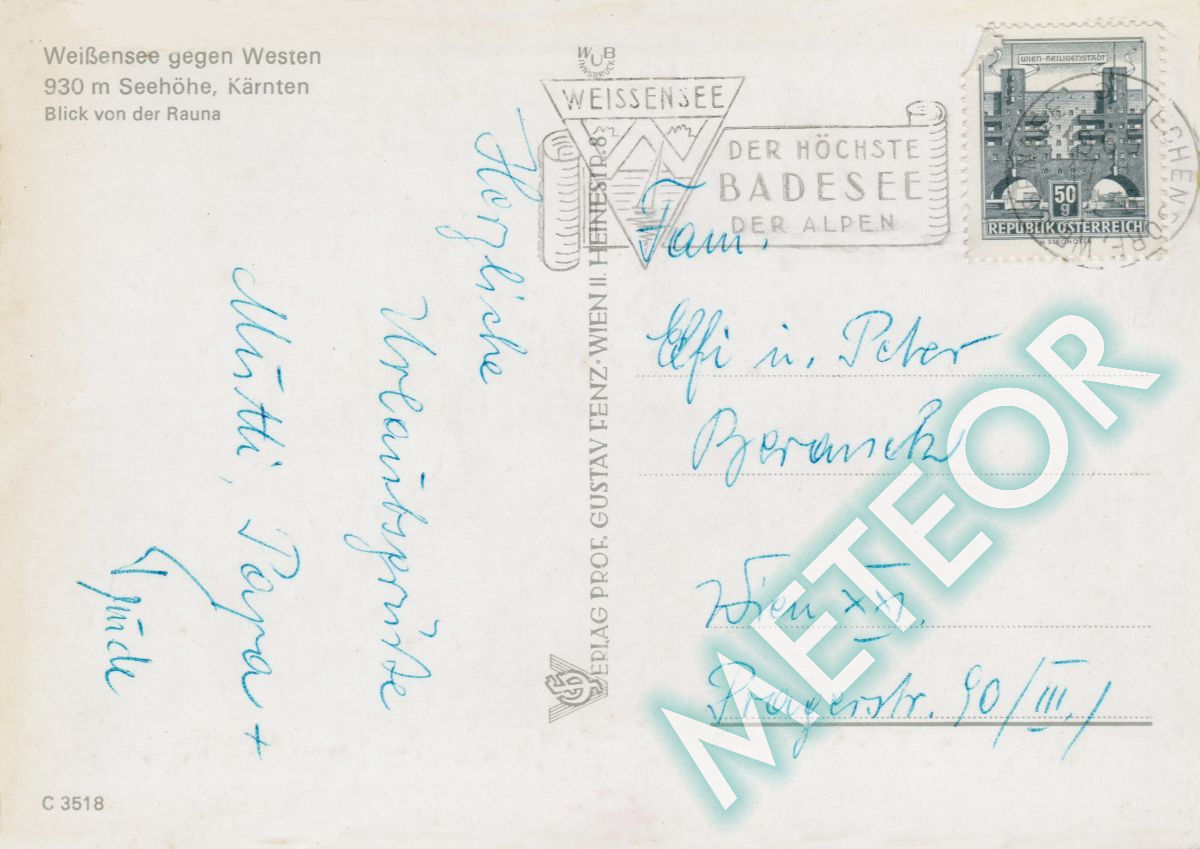 Weißensee gegen Westen
930 m Seehöhe, Kärnten
Blick von der Rauna
WUB
INNSBRUCK
WEISSENSEE
DER HÖCHSTE
BADESEE
DER ALPEN
WIEN-HEILIGENSTADT
50
g
REPUBLIK ÖSTERREICH
TECHENDORF
Herzliche
Urlaubsgrüße
Mutti, Papa +
VERLAG PROF. GUSTAV FENZ · WIEN II. HEINESTR. 8
Fam.
Elfi u. Peter
Beranek
Wien XXI.
Pragerstr. 90/III./
C 3518
METEOR